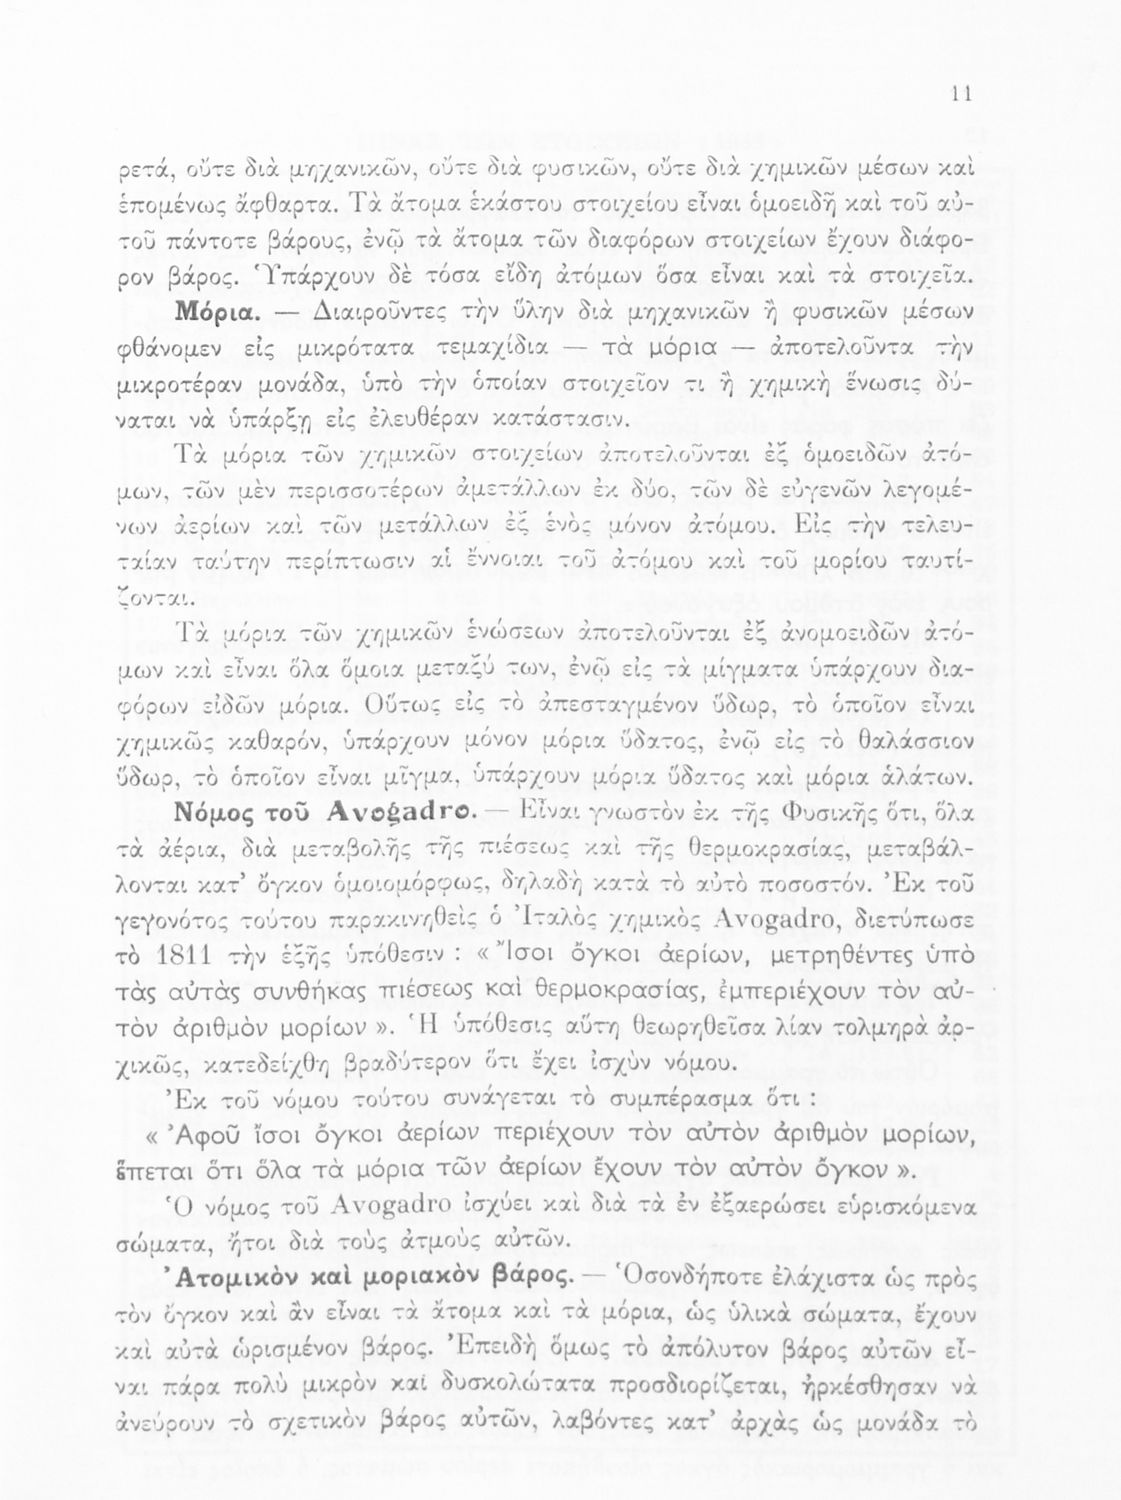 11
ρετά, οὔτε διὰ μηχανικῶν, οὔτε διὰ φυσικῶν, οὔτε διὰ χημικῶν μέσων καὶ
ἑπομένως ἄφθαρτα. Τὰ ἄτομα ἑκάστου στοιχείου εἶναι ὁμοειδῆ καὶ τοῦ αὐ-
τοῦ πάντοτε βάρους, ἐνῷ τὰ ἄτομα τῶν διαφόρων στοιχείων ἔχουν διάφο-
ρον βάρος. Ὑπάρχουν δὲ τόσα εἴδη ἀτόμων ὅσα εἶναι καὶ τὰ στοιχεῖα.
Μόρια. — Διαιροῦντες τὴν ὕλην διὰ μηχανικῶν ἢ φυσικῶν μέσων
φθάνομεν εἰς μικρότατα τεμαχίδια — τὰ μόρια — ἀποτελοῦντα τὴν
μικροτέραν μονάδα, ὑπὸ τὴν ὁποίαν στοιχεῖον τι ἢ χημικὴ ἕνωσις δύ-
ναται νὰ ὑπάρξῃ εἰς ἐλευθέραν κατάστασιν.
Τὰ μόρια τῶν χημικῶν στοιχείων ἀποτελοῦνται ἐξ ὁμοειδῶν ἀτό-
μων, τῶν μὲν περισσοτέρων ἀμετάλλων ἐκ δύο, τῶν δὲ εὐγενῶν λεγομέ-
νων ἀερίων καὶ τῶν μετάλλων ἐξ ἑνὸς μόνον ἀτόμου. Εἰς τὴν τελευ-
ταίαν ταύτην περίπτωσιν αἱ ἔννοιαι τοῦ ἀτόμου καὶ τοῦ μορίου ταυτί-
ζονται.
Τὰ μόρια τῶν χημικῶν ἑνώσεων ἀποτελοῦνται ἐξ ἀνομοειδῶν ἀτό-
μων καὶ εἶναι ὅλα ὅμοια μεταξύ των, ἐνῷ εἰς τὰ μίγματα ὑπάρχουν δια-
φόρων εἰδῶν μόρια. Οὕτως εἰς τὸ ἀπεσταγμένον ὕδωρ, τὸ ὁποῖον εἶναι
χημικῶς καθαρόν, ὑπάρχουν μόνον μόρια ὕδατος, ἐνῷ εἰς τὸ θαλάσσιον
ὕδωρ, τὸ ὁποῖον εἶναι μῖγμα, ὑπάρχουν μόρια ὕδατος καὶ μόρια ἁλάτων.
Νόμος τοῦ Avogadro. — Εἶναι γνωστὸν ἐκ τῆς Φυσικῆς ὅτι, ὅλα
τὰ ἀέρια, διὰ μεταβολῆς τῆς πιέσεως καὶ τῆς θερμοκρασίας, μεταβάλ-
λονται κατ' ὄγκον ὁμοιομόρφως, δηλαδὴ κατὰ τὸ αὐτὸ ποσοστόν. Ἐκ τοῦ
γεγονότος τούτου παρακινηθεὶς ὁ Ἰταλὸς χημικὸς Avogadro, διετύπωσε
τὸ 1811 τὴν ἑξῆς ὑπόθεσιν : « Ἴσοι ὄγκοι ἀερίων, μετρηθέντες ὑπὸ
τὰς αὐτὰς συνθήκας πιέσεως καὶ θερμοκρασίας, ἐμπεριέχουν τὸν αὐ-
τὸν ἀριθμὸν μορίων ». Ἡ ὑπόθεσις αὕτη θεωρηθεῖσα λίαν τολμηρὰ ἀρ-
χικῶς, κατεδείχθη βραδύτερον ὅτι ἔχει ἰσχὺν νόμου.
Ἐκ τοῦ νόμου τούτου συνάγεται τὸ συμπέρασμα ὅτι :
« Ἀφοῦ ἴσοι ὄγκοι ἀερίων περιέχουν τὸν αὐτὸν ἀριθμὸν μορίων,
ἕπεται ὅτι ὅλα τὰ μόρια τῶν ἀερίων ἔχουν τὸν αὐτὸν ὄγκον ».
Ὁ νόμος τοῦ Avogadro ἰσχύει καὶ διὰ τὰ ἐν ἐξαερώσει εὑρισκόμενα
σώματα, ἤτοι διὰ τοὺς ἀτμοὺς αὐτῶν.
Ἀτομικὸν καὶ μοριακὸν βάρος. — Ὁσονδήποτε ἐλάχιστα ὡς πρὸς
τὸν ὄγκον καὶ ἂν εἶναι τὰ ἄτομα καὶ τὰ μόρια, ὡς ὑλικὰ σώματα, ἔχουν
καὶ αὐτὰ ὡρισμένον βάρος. Ἐπειδὴ ὅμως τὸ ἀπόλυτον βάρος αὐτῶν εἶ-
ναι πάρα πολὺ μικρὸν καὶ δυσκολώτατα προσδιορίζεται, ἠρκέσθησαν νὰ
ἀνεύρουν τὸ σχετικὸν βάρος αὐτῶν, λαβόντες κατ' ἀρχὰς ὡς μονάδα τὸ